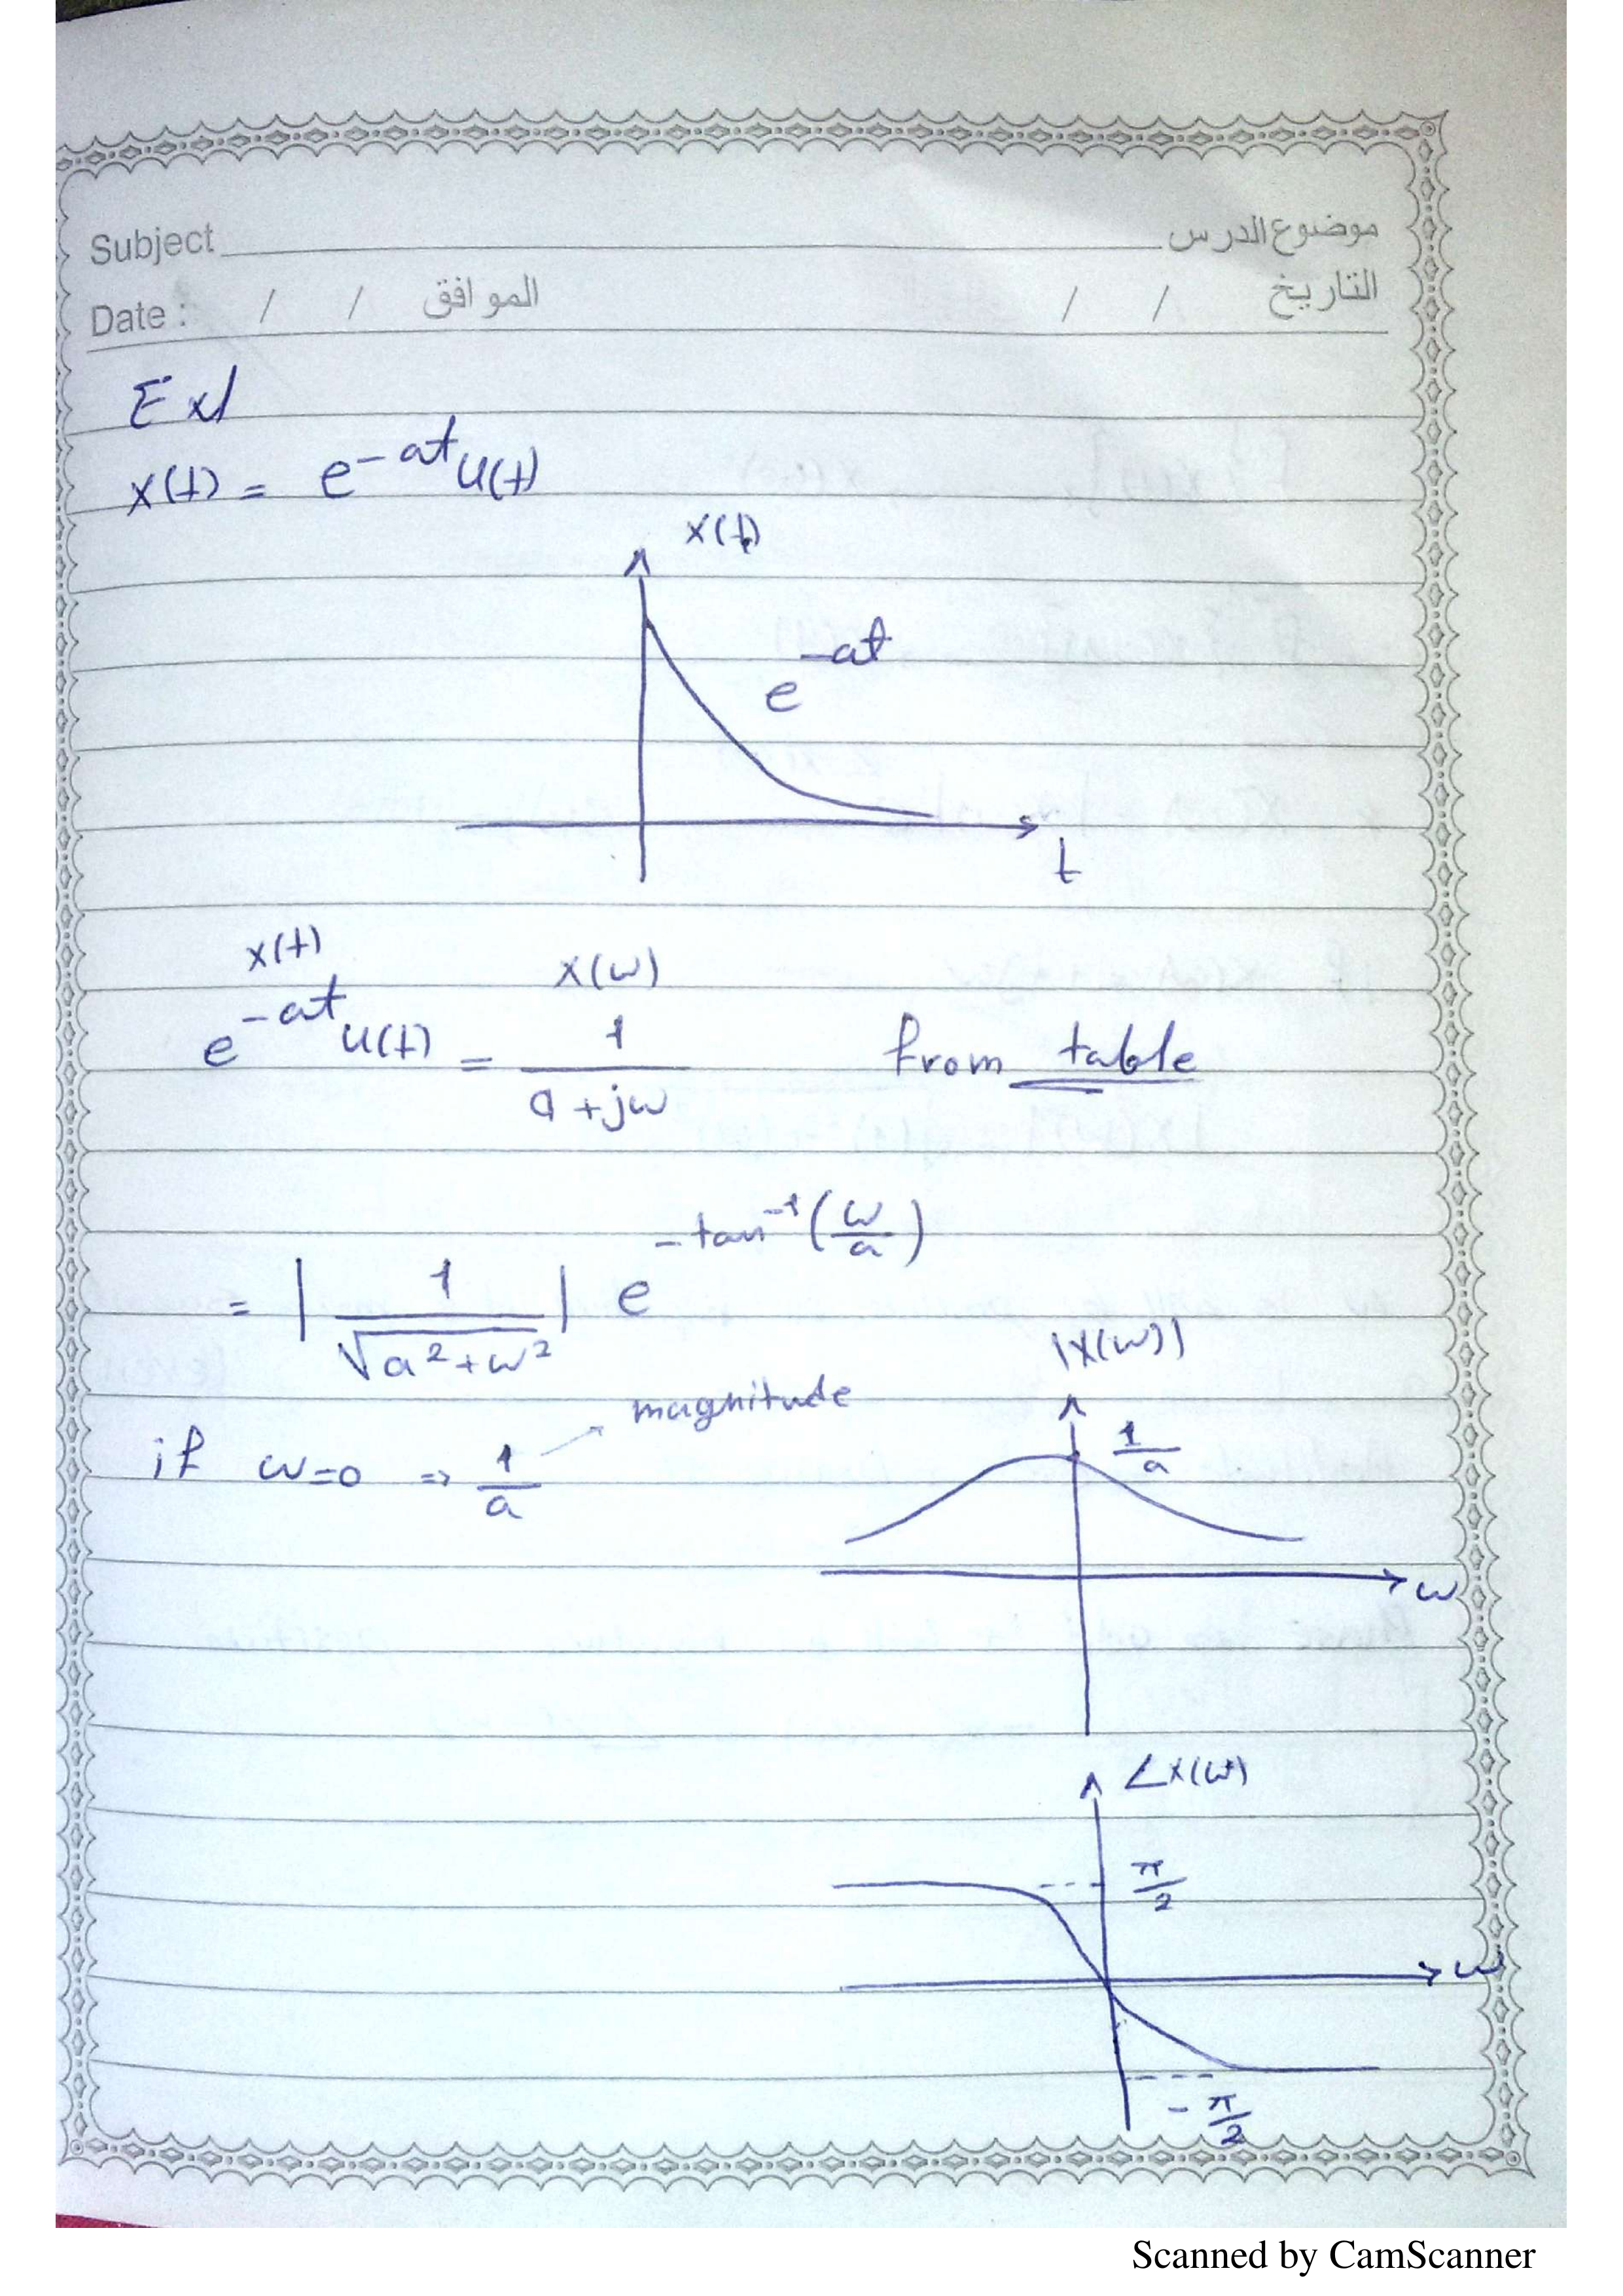 Subject موضوع الدرس
Date : / / الموافق / / التاريخ
Ex/
x(t) = e^{-at} u(t)
x(t)
e^{-at}
t
x(t) X(ω)
e^{-at} u(t) = \frac{1}{a+jω} from table
= |\frac{1}{\sqrt{a^2+ω^2}}| e^{-tan^{-1}(\frac{ω}{a})}
|X(ω)|
magnitude
if ω=0 ⇒ \frac{1}{a}
\frac{1}{a}
ω
∠X(ω)
\frac{π}{2}
ω
-\frac{π}{2}
Scanned by CamScanner